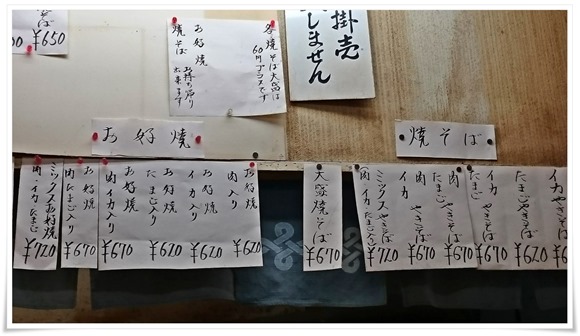 掛売
しません
各焼そば大盛は
60円プラスです
お好焼
焼そば
お持ち帰り
出来ます
そば
¥650
焼そば
イカ
やきそば
¥6
たまごやきそば
¥620
イカ
たまご
やきそば
¥670
肉
たまご
やきそば
¥670
肉
イカ
やきそば
¥670
ミックスやきそば
¥720
大盛焼そば
¥670
お好焼
お好焼
肉入り
¥620
お好焼
イカ入り
¥620
お好焼
たまご入り
¥620
お好焼
肉イカ入り
¥670
お好焼
肉たまご入り
¥670
ミックスお好焼
肉・イカ・たまご
¥720